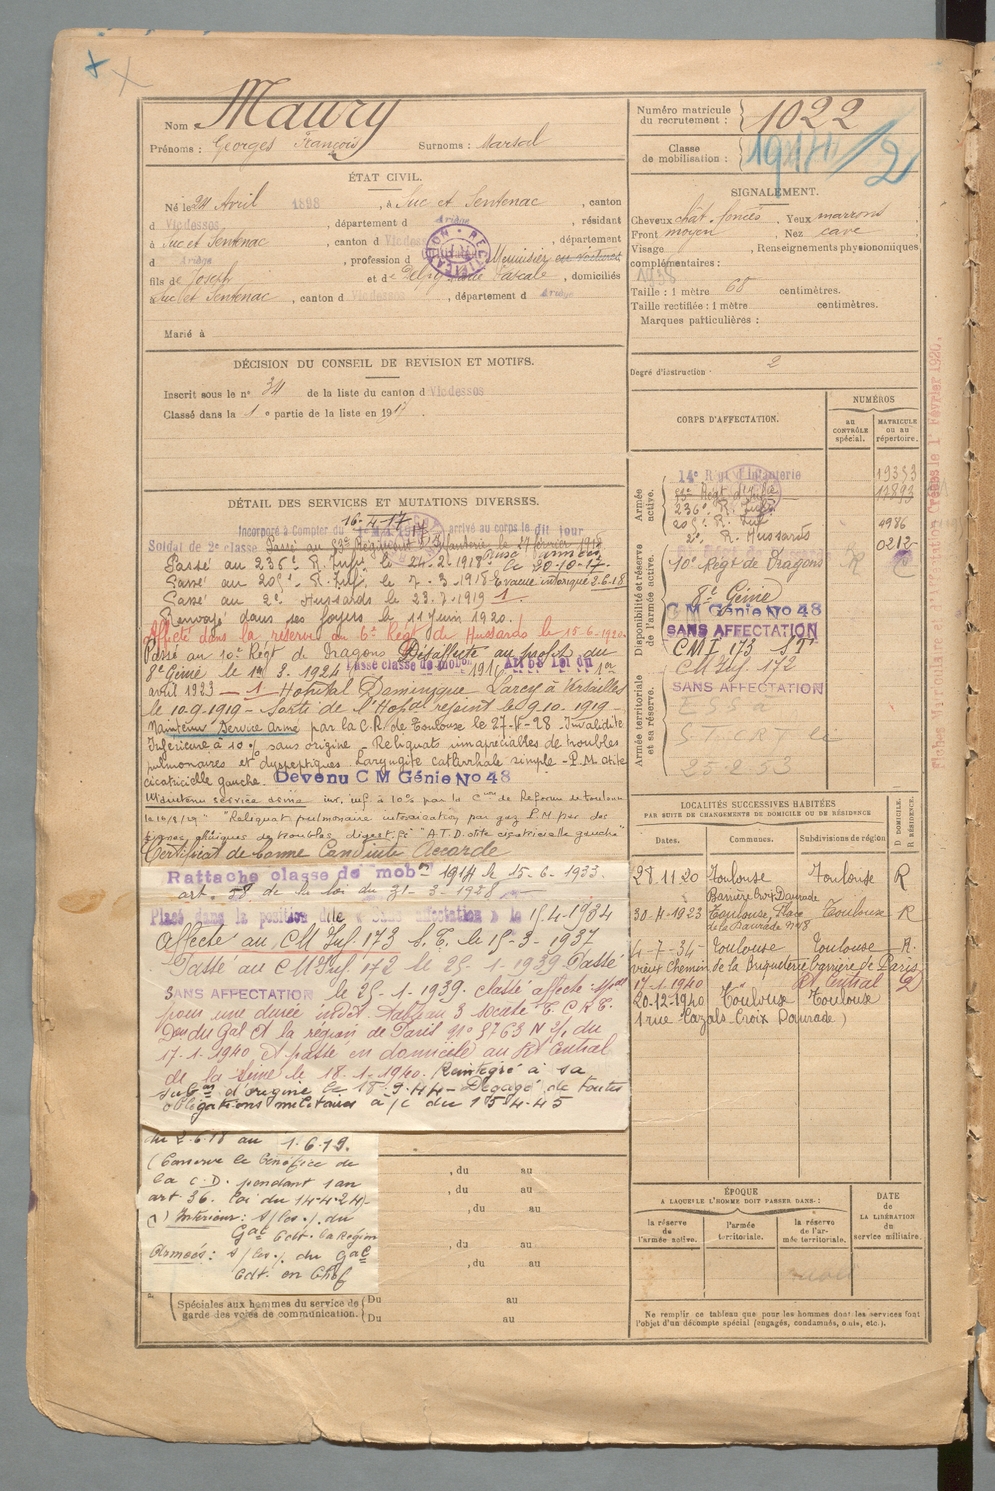 Nom : Maury
Prénoms : Georges François Surnoms : Marsal
ÉTAT CIVIL.
Né le 24 Avril 1898, à Suc et Sentenac, canton
d Vicdessos, département d Ariège, résidant
à Suc et Sentenac, canton d Vicdessos, département
d Ariège, profession d Menuisier
fils de Joseph et de Pascale, domiciliés
à Suc et Sentenac, canton d Vicdessos, département d Ariège
Marié à
DÉCISION DU CONSEIL DE REVISION ET MOTIFS.
Inscrit sous le n° 34 de la liste du canton d Vicdessos
Classé dans la 1e partie de la liste en 1917.
DÉTAIL DES SERVICES ET MUTATIONS DIVERSES.
16-4-17
Incorporé à Compter du arrivé au corps le dit jour
Soldat de 2e classe Passé au 83e Régiment d'Infanterie le 27 février 1918
Passé au 236e R. Inf. le 24.2.1918 le 20-10-17
Passé au 205e R. Inf. le 7.3.1918 Evacué intoxiqué 2.6.18
Passé au 2e Hussards le 23.7.1919 1
Renvoyé dans ses foyers le 11 Juin 1920.
Affecté dans la réserve au 6e Régt de Hussards le 15-6-1920
Passé au 10e Régt de Dragons Désaffecté au profit du
8e Génie le 1er 3.1924 Passé classe de mobon 1916 Art 58 Loi du 1er
avril 1923 — 1 Hopital Dominique Larrey à Versailles
le 10-9-1919 - Sorti de l'Hopal rejoint le 9.10.1919 -
Maintenu Service Armé par la C.R. de Toulouse le 27-V-28 - Invalidité
Inférieure à 10% sans origine - Reliquats inapréciables de troubles
pulmonaires et dyspeptiques Laryngite catharrhale simple - P.M. otite
cicatricielle gauche. Devenu C M Génie No 48
Maintenu service armé inv. inf. à 10% par la Con de Reforme de Toulouse
"Reliquat pulmonaire intoxication par gaz P.M pas des
signes cliniques de troubles digestifs "A.T.D. otite cicatricielle gauche"
Certificat de bonne Conduite Accordé
Rattaché classe de mobon 1914 le 15-6-1933.
art. 58 de la loi du 31-3-1928
Placé dans la position dite « Sans affectation » le 15.4.1934
Affecté au CM Inf. 173 S.T. le 15-3-1937
Passé au CM Inf. 172 le 25.1.1939. Passé
SANS AFFECTATION le 25-1-1939. Classé affecté spécial
pour une durée indét. tableau 3
Don du Gal Ct la région de Paris No 5763 N 2/ du
17-1-1940 et passé en domicile au Rt Central
de la Seine le 18-1-1940. Réintégré à sa
subon d'origine le 18.9.44 - Dégagé de toutes
obligations militaires à /c du 15-4-45
du 2-6-18 au 1.6.19.
(Conserve le bénéfice de
la C.D. pendant 1 an
art 36. loi du 14-4-24)
Intérieur : S/les o/. du
Gal Cdt. la Région
Armées : S/les o/. du Gal
Cdt. en Chef
, du au
, du au
, du au
, du au
, du au
Spéciales aux hommes du service de
garde des voies de communication.
Du au
Du au
Numéro matricule
du recrutement : 1022
Classe
de mobilisation :
SIGNALEMENT.
Cheveux chât. foncés, Yeux marrons
Front moyen, Nez cave
Visage , Renseignements physionomiques
complémentaires :
Taille : 1 mètre 68 centimètres.
Taille rectifiée : 1 mètre centimètres.
Marques particulières :
Degré d'instruction : 2
CORPS D'AFFECTATION.
NUMÉROS
AU
CONTRÔLE
spécial.
MATRICULE
OU AU
répertoire.
Armée
active.
14e Régt d'Infanterie 19353
83e Régt d'Infie 12893
236e R. Inf.
205e R. Inf. 4986
2e R. Hussards 0212
Disponibilité et réserve
de l'armée active.
10e Régt de Dragons
8e Génie
C M Génie No 48
SANS AFFECTATION
CM I 173 ST
Armée territoriale
et sa réserve.
CM Inf. 172
SANS AFFECTATION
25.2.53
LOCALITÉS SUCCESSIVES HABITÉES
PAR SUITE DE CHANGEMENTS DE DOMICILE OU DE RÉSIDENCE
Dates. Communes. Subdivisions de région
D. DOMICILE.
R. RÉSIDENCE.
28.11.20 Toulouse Toulouse R
Barrière Croix Daurade
30-4-1923 Toulouse, Place Toulouse R
de la Daurade No 8
4-7-34 Toulouse Toulouse R.
vieux Chemin de la Briqueterie barrière de Paris
17-1-1940 Rt Central D
20-12-1940 Toulouse Toulouse
1 rue Cazals Croix Daurade)
ÉPOQUE
A LAQUELLE L'HOMME DOIT PASSER DANS :
la réserve
de
l'armée active.
l'armée
territoriale.
la réserve
de l'ar-
mée territoriale.
DATE
de
LA LIBÉRATION
du
service militaire.
Ne remplir ce tableau que pour les hommes dont les services font
l'objet d'un décompte spécial (engagés, condamnés, omis, etc.).